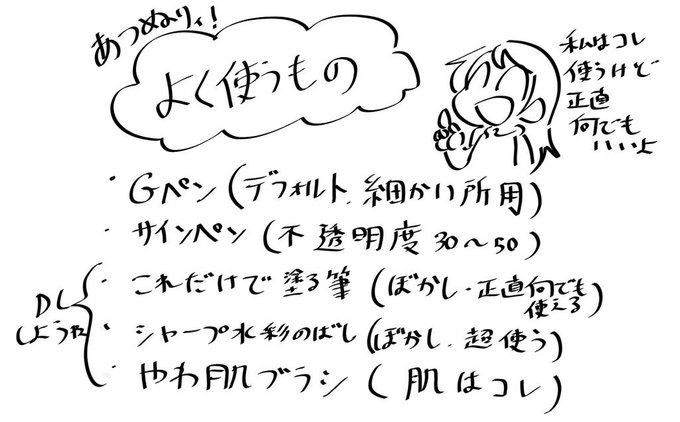 あつぬりィ!
よく使うもの
私はコレ
使うけど
正直
何でも
いいよ
・Gペン(デフォルト、細かい所用)
・サインペン(不透明度30~50)
・これだけで塗る筆(ぼかし・正直何でも
使える)
・シャープ水彩のばし(ぼかし、超使う)
・やわ肌ブラシ(肌はコレ)
DL
しようね